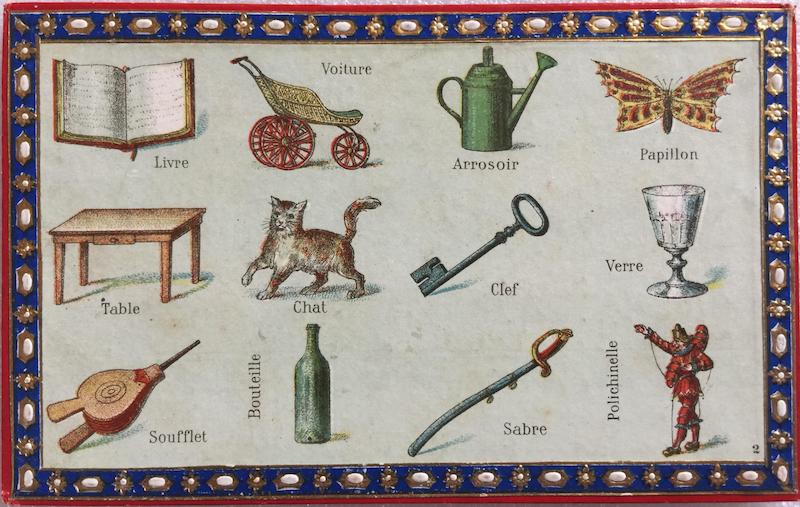 Livre
Voiture
Arrosoir
Papillon
Table
Chat
Clef
Verre
Soufflet
Bouteille
Sabre
Polichinelle
2